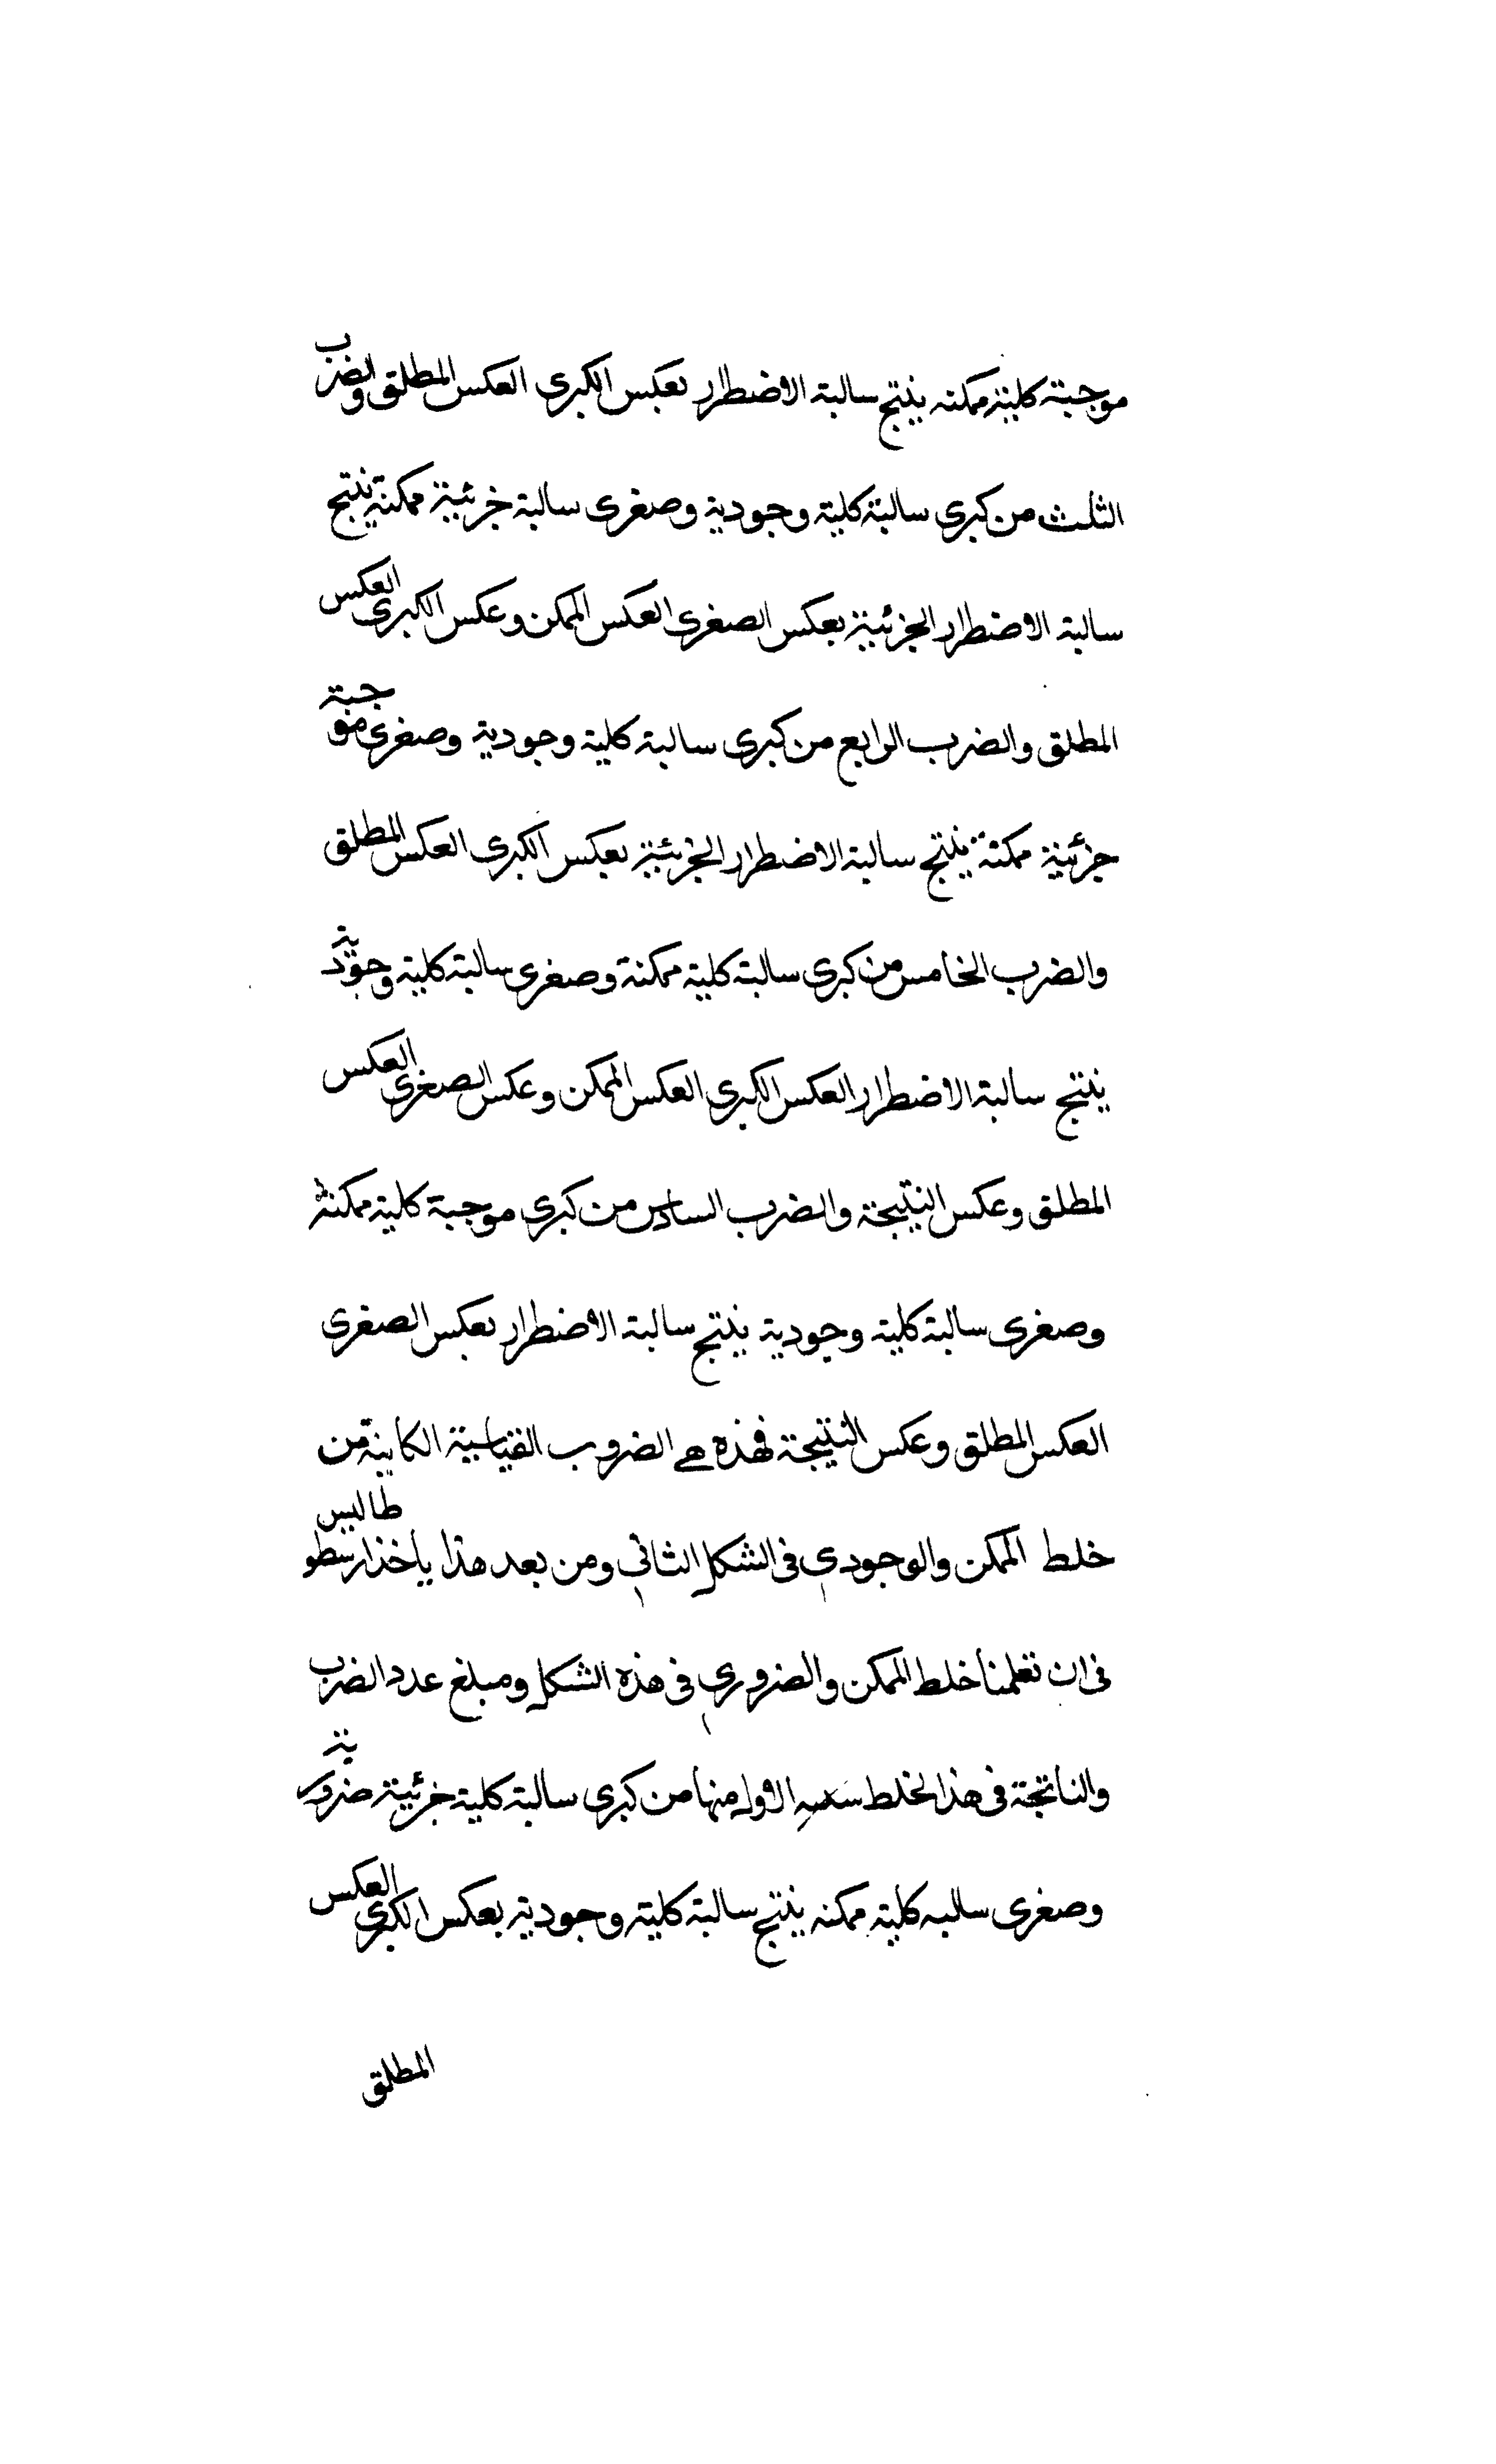 موجبة كلية ممكنه ينتج سالبة الاضطرار بعكس الكبرى العكس المطلق والضرب
الثلث من كبرى سالبة كلية وجودية وصغرى سالبة جزئية ممكنة ينتج
سالبة الاضطرار الجزئية بعكس الصغرى العكس الممكن وعكس الاكبرى العكس
المطلق والضرب الرابع من كبرى سالبة كلية وجودية وصغرى موجبة
جزئية ممكنة ينتج سالبة الاضطرار الجزئية بعكس الكبرى العكس المطلق
والضرب الخامس من كبرى سالبة كلية ممكنة وصغرى سالبة كلية وجودية
ينتج سالبة الاضطرار العكس الكبرى العكس الممكن وعكس الصغرى العكس
المطلق وعكس النتيجة والضرب السادس من كبرى موجبة كلية ممكنة
وصغرى سالبة كلية وجودية ينتج سالبة الاضطرار بعكس الصغرى
العكس المطلق وعكس النتيجة فهذه هے الضروب القياسية الكاينة من
خلط الممكن والوجودي فى الشكل الثاني ومن بعد هذا يأخذ ارسطوطاليس
فى ان تعلمنا خلط الممكن والضروري فى هذه الشكل ومبلغ عدد الضرب
والناتجة فى هذا لخلط الاوله منها من كبرى سالبة كلية جزئية ضرورية
وصغرى سالبه كلية ممكنه ينتج سالبة كلية وجودية بعكس الكبرى العكس
المطلق